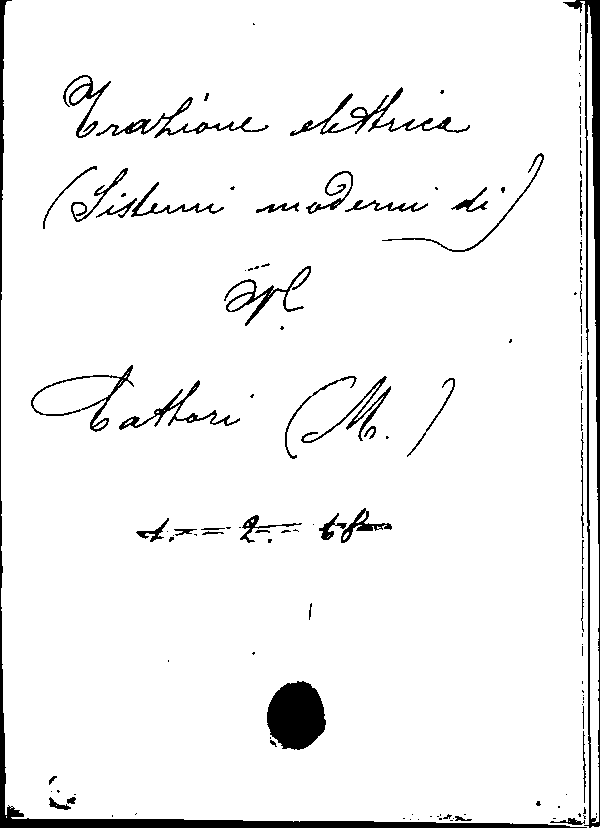 Trazione elettrica
(Sistemi moderni di)
Cattori (M.)
1. - 2. - 68